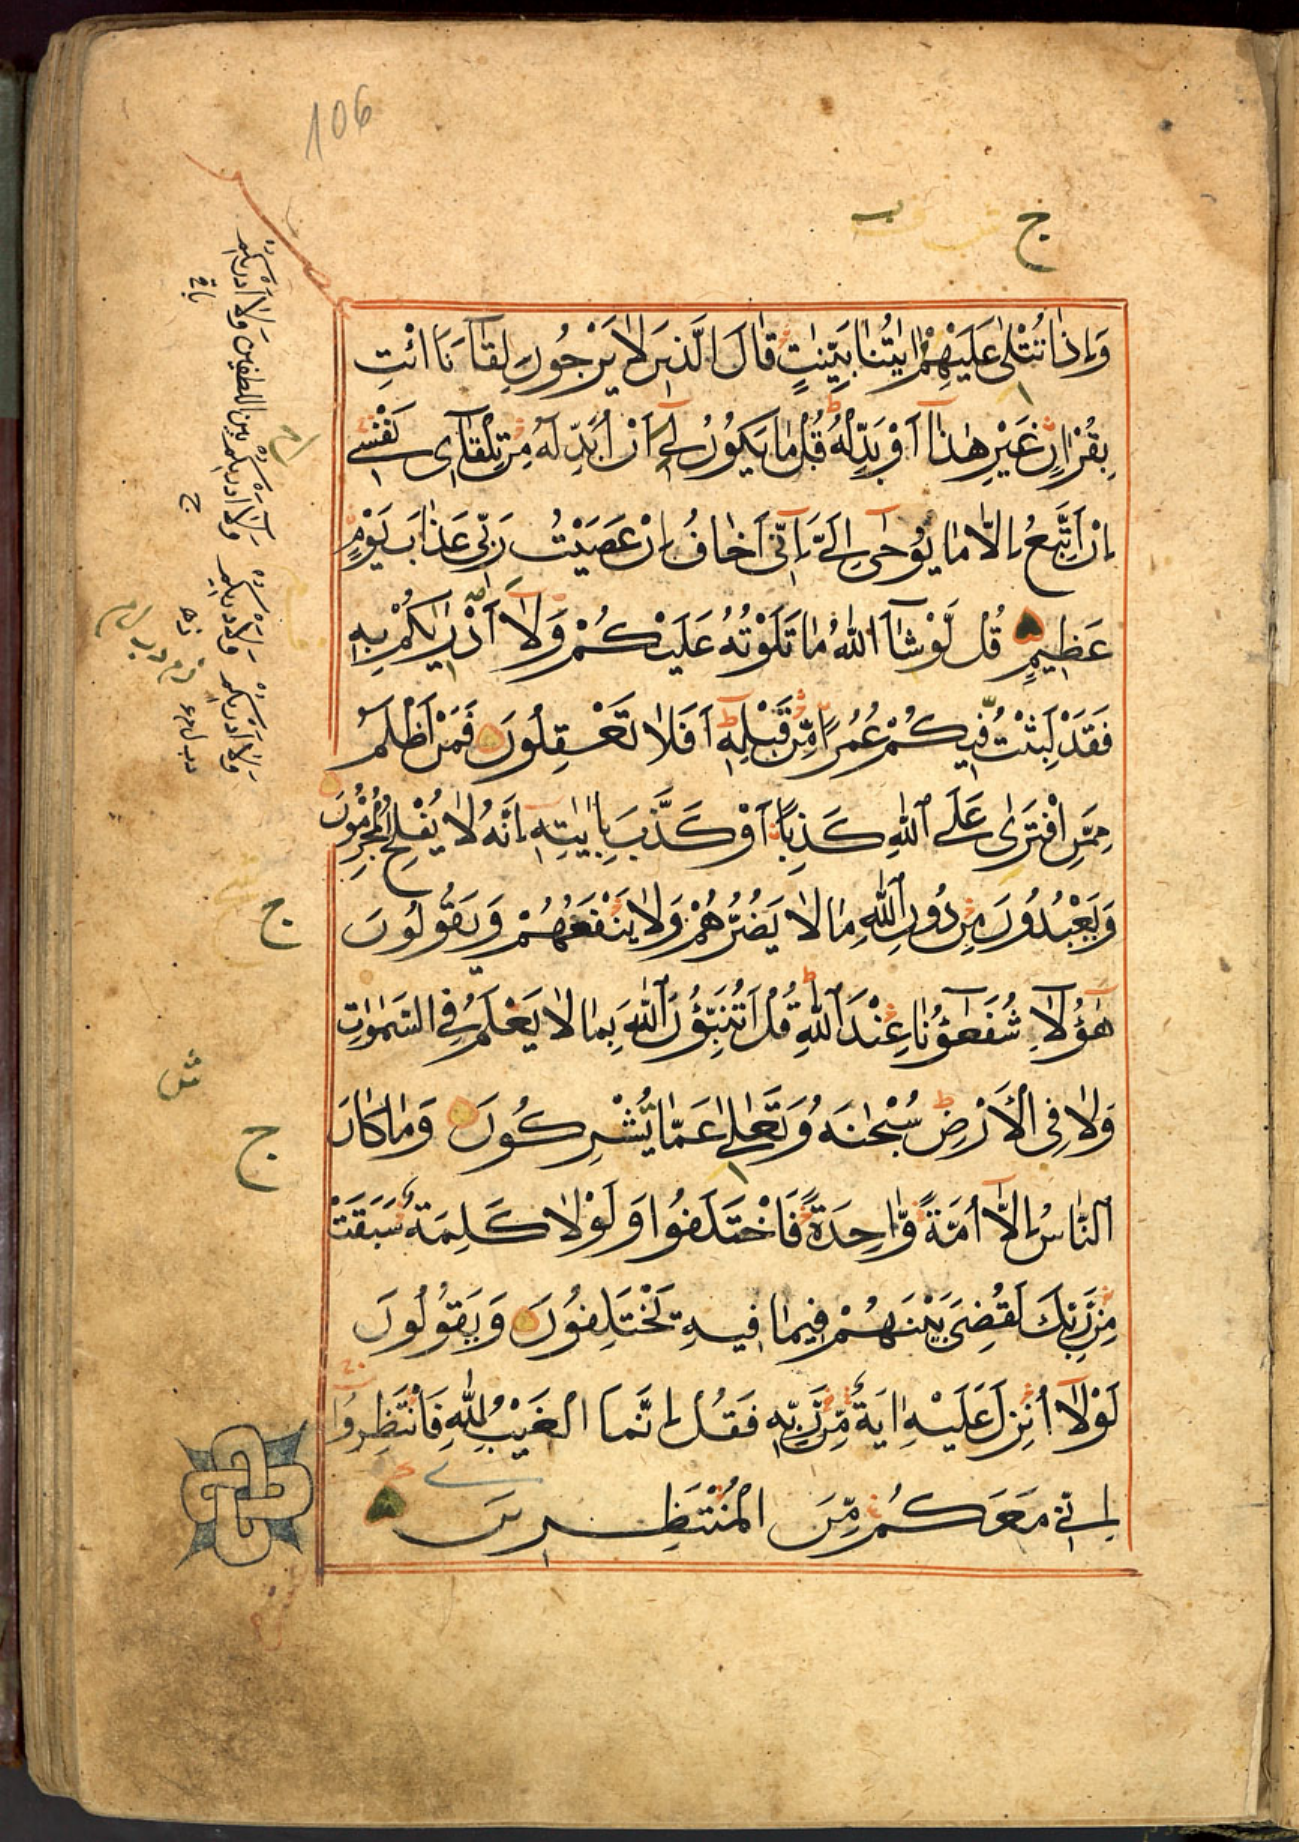 106
ج
وَاِذَا تُتْلٰى عَلَيْهِمْ اٰيَاتُنَا بَيِّنَاتٍ قَالَ الَّذِينَ لَا يَرْجُونَ لِقَآءَنَا ائْتِ
بِقُرْاٰنٍ غَيْرِ هٰذَآ اَوْ بَدِّلْهُ قُلْ مَا يَكُونُ لِيٓ اَنْ اُبَدِّلَهُ مِنْ تِلْقَآئِ نَفْسِي
اِنْ اَتَّبِعُ اِلَّا مَا يُوحٰٓى اِلَيَّ اِنِّيٓ اَخَافُ اِنْ عَصَيْتُ رَبِّي عَذَابَ يَوْمٍ
عَظِيمٍ قُل لَّوْ شَآءَ اللّٰهُ مَا تَلَوْتُهُ عَلَيْكُمْ وَلَآ اَدْرٰيكُمْ بِهِ
فَقَدْ لَبِثْتُ فِيكُمْ عُمُرًا مِّنْ قَبْلِهِ اَفَلَا تَعْقِلُونَ فَمَنْ اَظْلَمُ
مِمَّنِ افْتَرٰى عَلَى اللّٰهِ كَذِبًا اَوْ كَذَّبَ بِاٰيٰتِهِ اِنَّهُ لَا يُفْلِحُ الْمُجْرِمُونَ
وَيَعْبُدُونَ مِنْ دُونِ اللّٰهِ مَا لَا يَضُرُّهُمْ وَلَا يَنْفَعُهُمْ وَيَقُولُونَ
هٰٓؤُلَآءِ شُفَعَٓؤُنَا عِنْدَ اللّٰهِ قُلْ اَتُنَبِّؤُنَ اللّٰهَ بِمَا لَا يَعْلَمُ فِي السَّمٰوٰتِ
وَلَا فِي الْاَرْضِ سُبْحٰنَهُ وَتَعٰلٰى عَمَّا يُشْرِكُونَ وَمَا كَانَ
النَّاسُ اِلَّآ اُمَّةً وَّاحِدَةً فَاخْتَلَفُوا وَلَوْلَا كَلِمَةٌ سَبَقَتْ
مِنْ رَّبِّكَ لَقُضِيَ بَيْنَهُمْ فِيمَا فِيهِ يَخْتَلِفُونَ وَيَقُولُونَ
لَوْلَآ اُنْزِلَ عَلَيْهِ اٰيَةٌ مِّنْ رَّبِّهِ فَقُلْ اِنَّمَا الْغَيْبُ لِلّٰهِ فَانْتَظِرُوا
اِنِّي مَعَكُمْ مِّنَ الْمُنْتَظِرِينَ
وَلَآ اَدْرٰيكُمْ بين اللفظين وَلَآ اَدْرٰيكُمْ
ج
ج